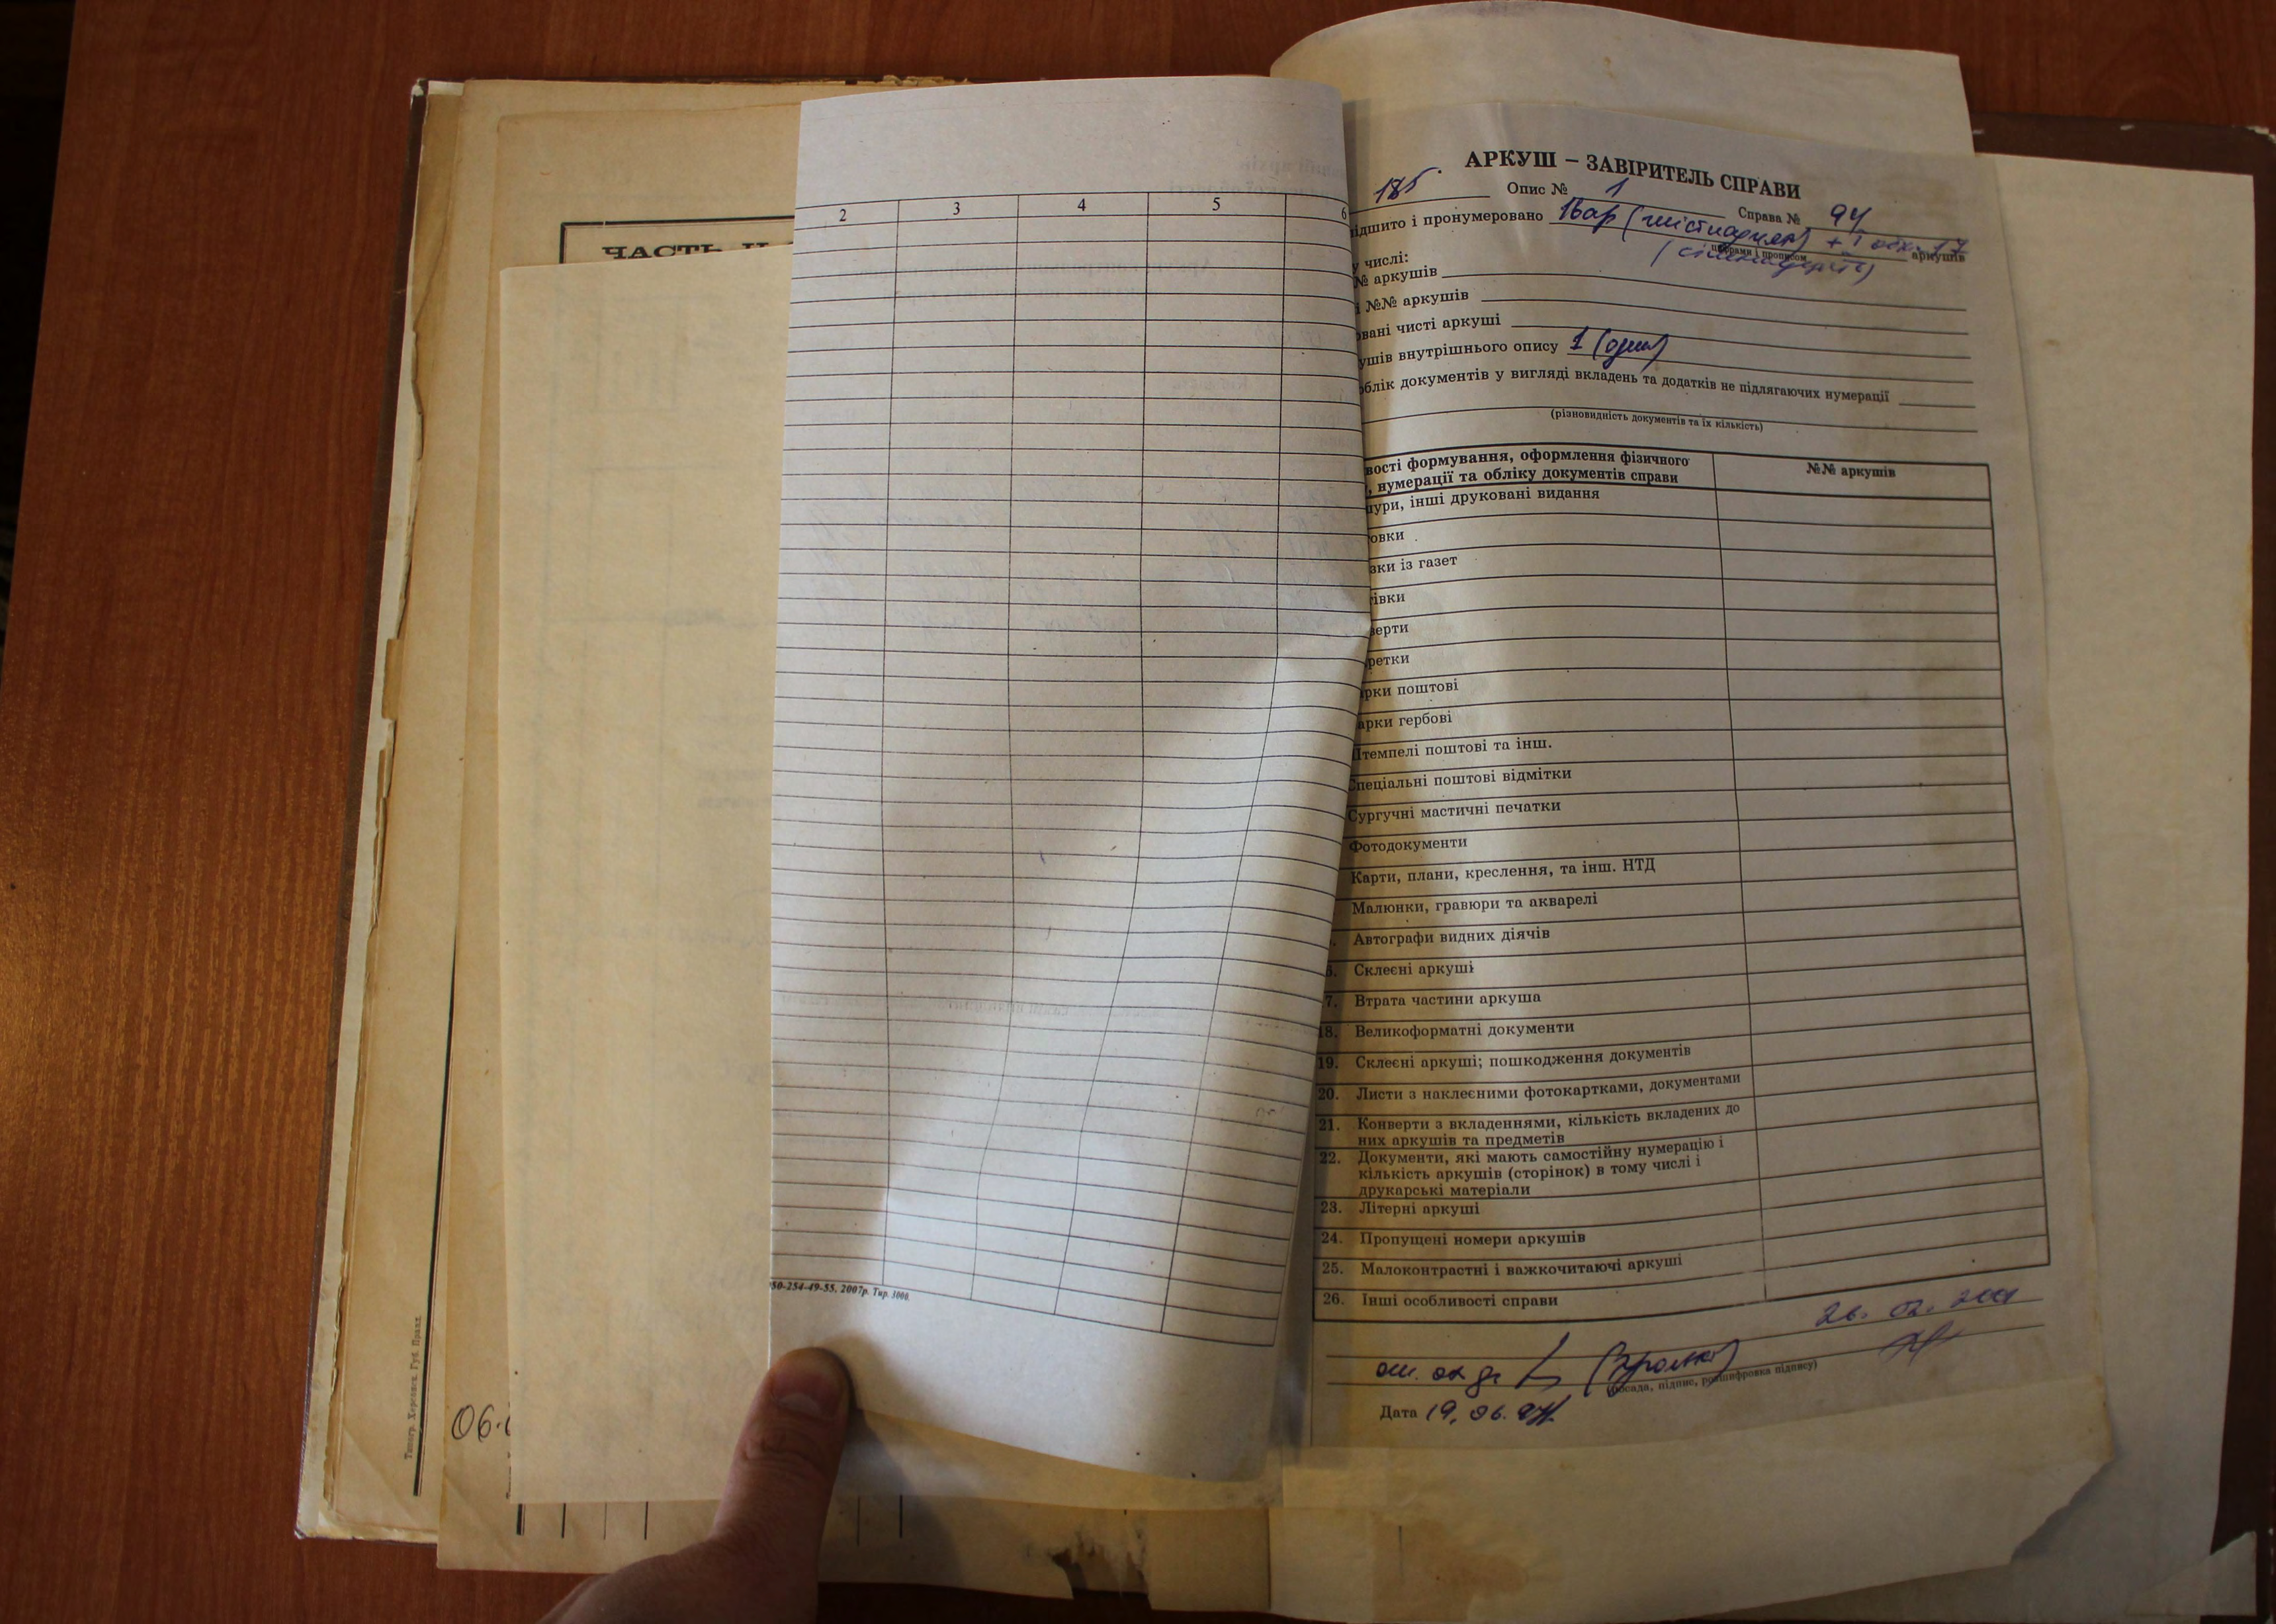 ЧАСТЬ
Типогр. Херсонск. Губ. Правл.
2 3 4 5 6
50-254-49-55. 2007р. Тир. 3000.
АРКУШ – ЗАВІРИТЕЛЬ СПРАВИ
185 Опис № 1 Справа № 94
ідшито і пронумеровано 16ар (шістнадцять) + 1 17 аркушів
цифрами і прописом
у числі:
№ аркушів
і №№ аркушів
овані чисті аркуші
ушів внутрішнього опису 1 (один)
облік документів у вигляді вкладень та додатків не підлягаючих нумерації
(різновидність документів та їх кількість)
вості формування, оформлення фізичного №№ аркушів
, нумерації та обліку документів справи
ури, інші друковані видання
овки
зки із газет
івки
верти
ретки
рки поштові
арки гербові
Штемпелі поштові та інш.
Спеціальні поштові відмітки
Сургучні мастичні печатки
Фотодокументи
Карти, плани, креслення, та інш. НТД
Малюнки, гравюри та акварелі
Автографи видних діячів
6. Склеєні аркуші
7. Втрата частини аркуша
18. Великоформатні документи
19. Склеєні аркуші; пошкодження документів
20. Листи з наклеєними фотокартками, документами
21. Конверти з вкладеннями, кількість вкладених до
них аркушів та предметів
22. Документи, які мають самостійну нумерацію і
кількість аркушів (сторінок) в тому числі і
друкарські матеріали
23. Літерні аркуші
24. Пропущені номери аркушів
25. Малоконтрастні і важкочитаючі аркуші
26. Інші особливості справи
26. 02.
(посада, підпис, розшифровка підпису)
Дата 19.06.
06.